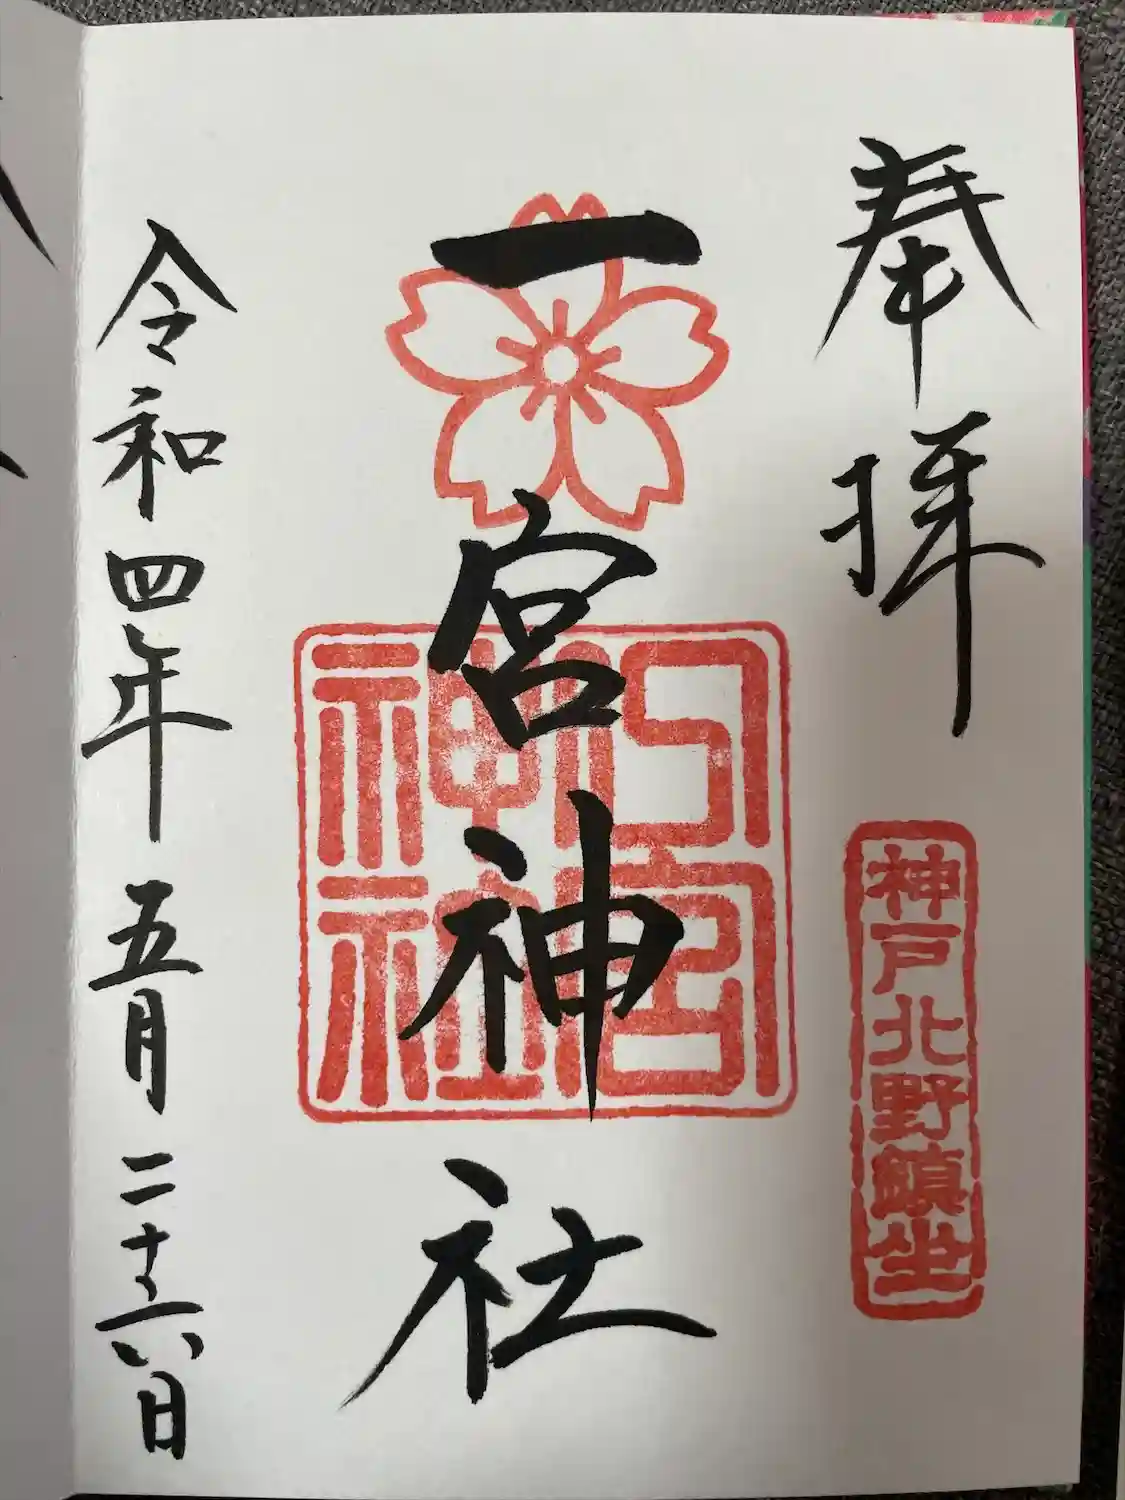 奉拝
神戸北野鎮座
一宮神社
一宮神社
令和四年五月二十六日